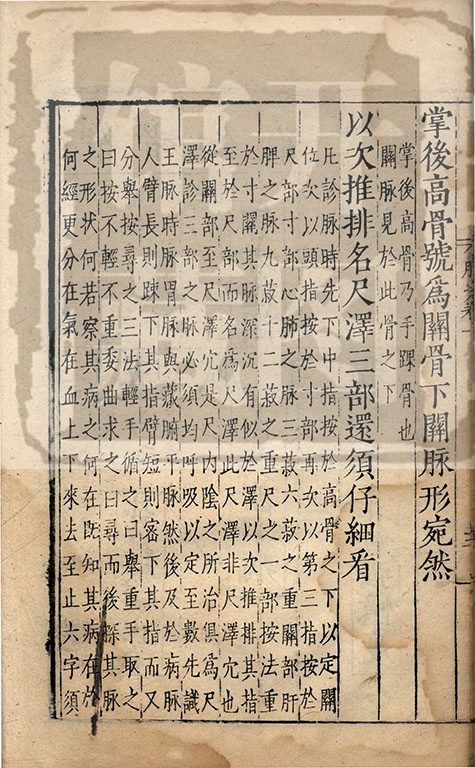 掌後高骨號爲關骨下關脉形宛然
掌後高骨乃手踝骨也
關脉見於此骨之下
以次推排名尺澤三部還須仔細看
凡診脉時先下中指按於高骨之下以定關
位次以頭指按於寸部再次以第三指按於
尺部寸部心肺之脉三菽六菽之重關部肝
脾之脉九菽十二菽之重尺之一部按法重
於寸關其脉深沉有似於澤以次推排其指
至於尺部而名爲尺澤此尺澤非尺澤穴也
從關部至尺澤穴是尺内陰之所治俱爲尺
澤診三部之脉必須均呼吸以定至數先識
王脉時脉胃脉與藏腑平脉然後及於病脉
人臂長則踈下其指臂短則密下其指而又
分舉按尋之三法輕手循之曰舉重手取之
曰按不輕不重委曲求之曰尋而後探其脉
之形狀何若察其病之何在既知其病在於
何經更分在氣在血上下來去至止六字須